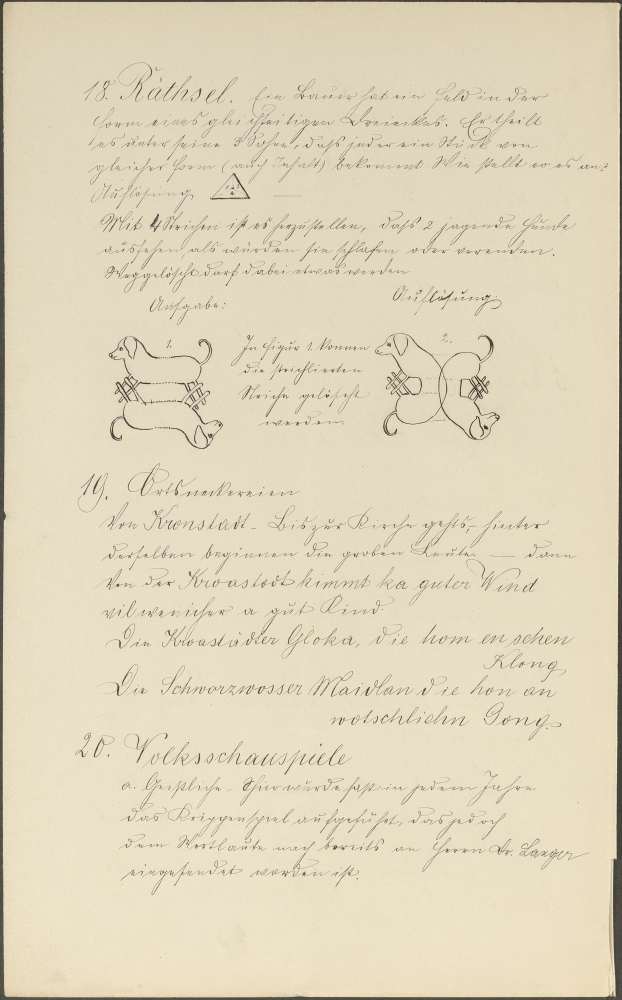 18. Räthsel. Ein Bauer hat ein Feld in der
Form eines gleichseitigen Dreieckes. Er theilt
es unter seine 3 Söhne, daß jeder ein Stück von
gleicher Form (auch Inhalt) bekommt Wie stellt er es an?
Auflösung
Mit 4 Strichen ist es herzustellen, daß 2 jagende Hunde
aussehen als würden sie schlafen oder verenden.
Weggelöscht darf dabei etwas werden
Aufgabe: Auflösung
1. 2.
In Figur 1. können
die strichlierten
Striche gelöscht
werden.
19. Ortsneckereien
Von Kronstadt - Bis zur Kirche gehts, hinter
derselben beginnen die groben Leute — dann
Von der Kroastodt kimmt ka guter Wind
vil wenicher a gut Kind
Die Kroastädter Gloka, die hom en schen
Klong
Die Schworzwosser Maidlan die hon an
wotschlichn Gong.
20. Volksschauspiele
a. Geistliche - Hier wurde fast in jedem Jahre
das Krippenspiel aufgeführt, das jedoch
dem Wortlaute nach bereits an Herrn Dr. Langer
eingesendet worden ist.